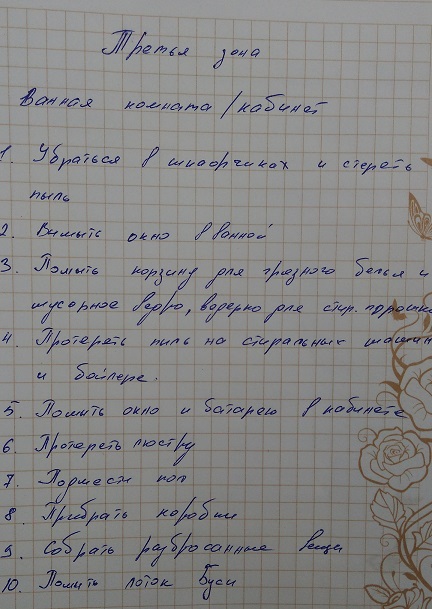 Третья зона
Ванная комната/кабинет
1. Убраться в шкафчиках и стереть
пыль
2. Вымыть окно в ванной
3. Помыть корзину для грязного белья и
мусорное ведро, ведерко для стир. порошка
4. Протереть пыль на стиральных машин
и бойлере.
5. Помыть окно и батарею в кабинете
6. Протереть люстру
7. Подмести пол
8. Прибрать коробки
9. Собрать разбросанные вещи
10. Помыть лоток Буси